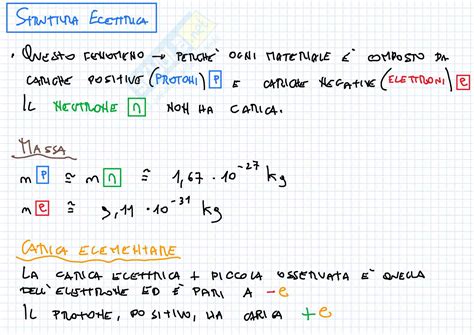 STRUTTURA ELETTRICA
• QUESTO FENOMENO → PERCHÉ OGNI MATERIALE È COMPOSTO DA
CARICHE POSITIVE (PROTONI) p E CARICHE NEGATIVE (ELETTRONI) e
IL NEUTRONE n NON HA CARICA.
MASSA
m p ≅ m n ≅ 1,67 · 10⁻²⁷ kg
m e ≅ 9,11 · 10⁻³¹ kg
CARICA ELEMENTARE
LA CARICA ELETTRICA + PICCOLA OSSERVATA È QUELLA
DELL'ELETTRONE ED È PARI A -e
IL PROTONE, POSITIVO, HA CARICA +e